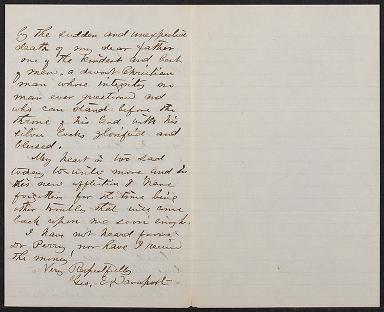 by the sudden and unexpected
death of my dear father
one of the kindest and best
of men, a devout Christian
man whose integrity no
man ever questioned and
who can stand before the
throne of his God with his
silver locks glorified and
blessed.
My heart is too sad
today to write more and in
this new affliction I have
forgotten for the time being
other troubles that will come
back upon me soon enough.
I have not heard from
Dr Perry, nor have I received
the money.
Very Respectfully
Geo. E. Davenport